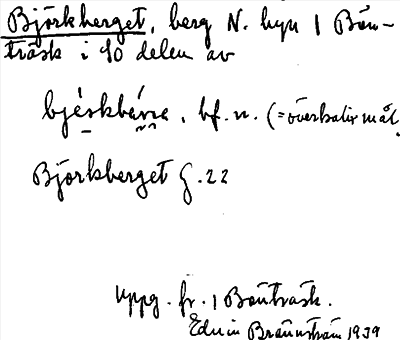 Björkberget, berg N. hyn 1 Bön-
träsk i SO delen av
bjéskbérre, bf. n. (= överkalixmål
Björkberget G. 22
uppg. fr. 1 Bönträsk.
Edvin Brännström 1939